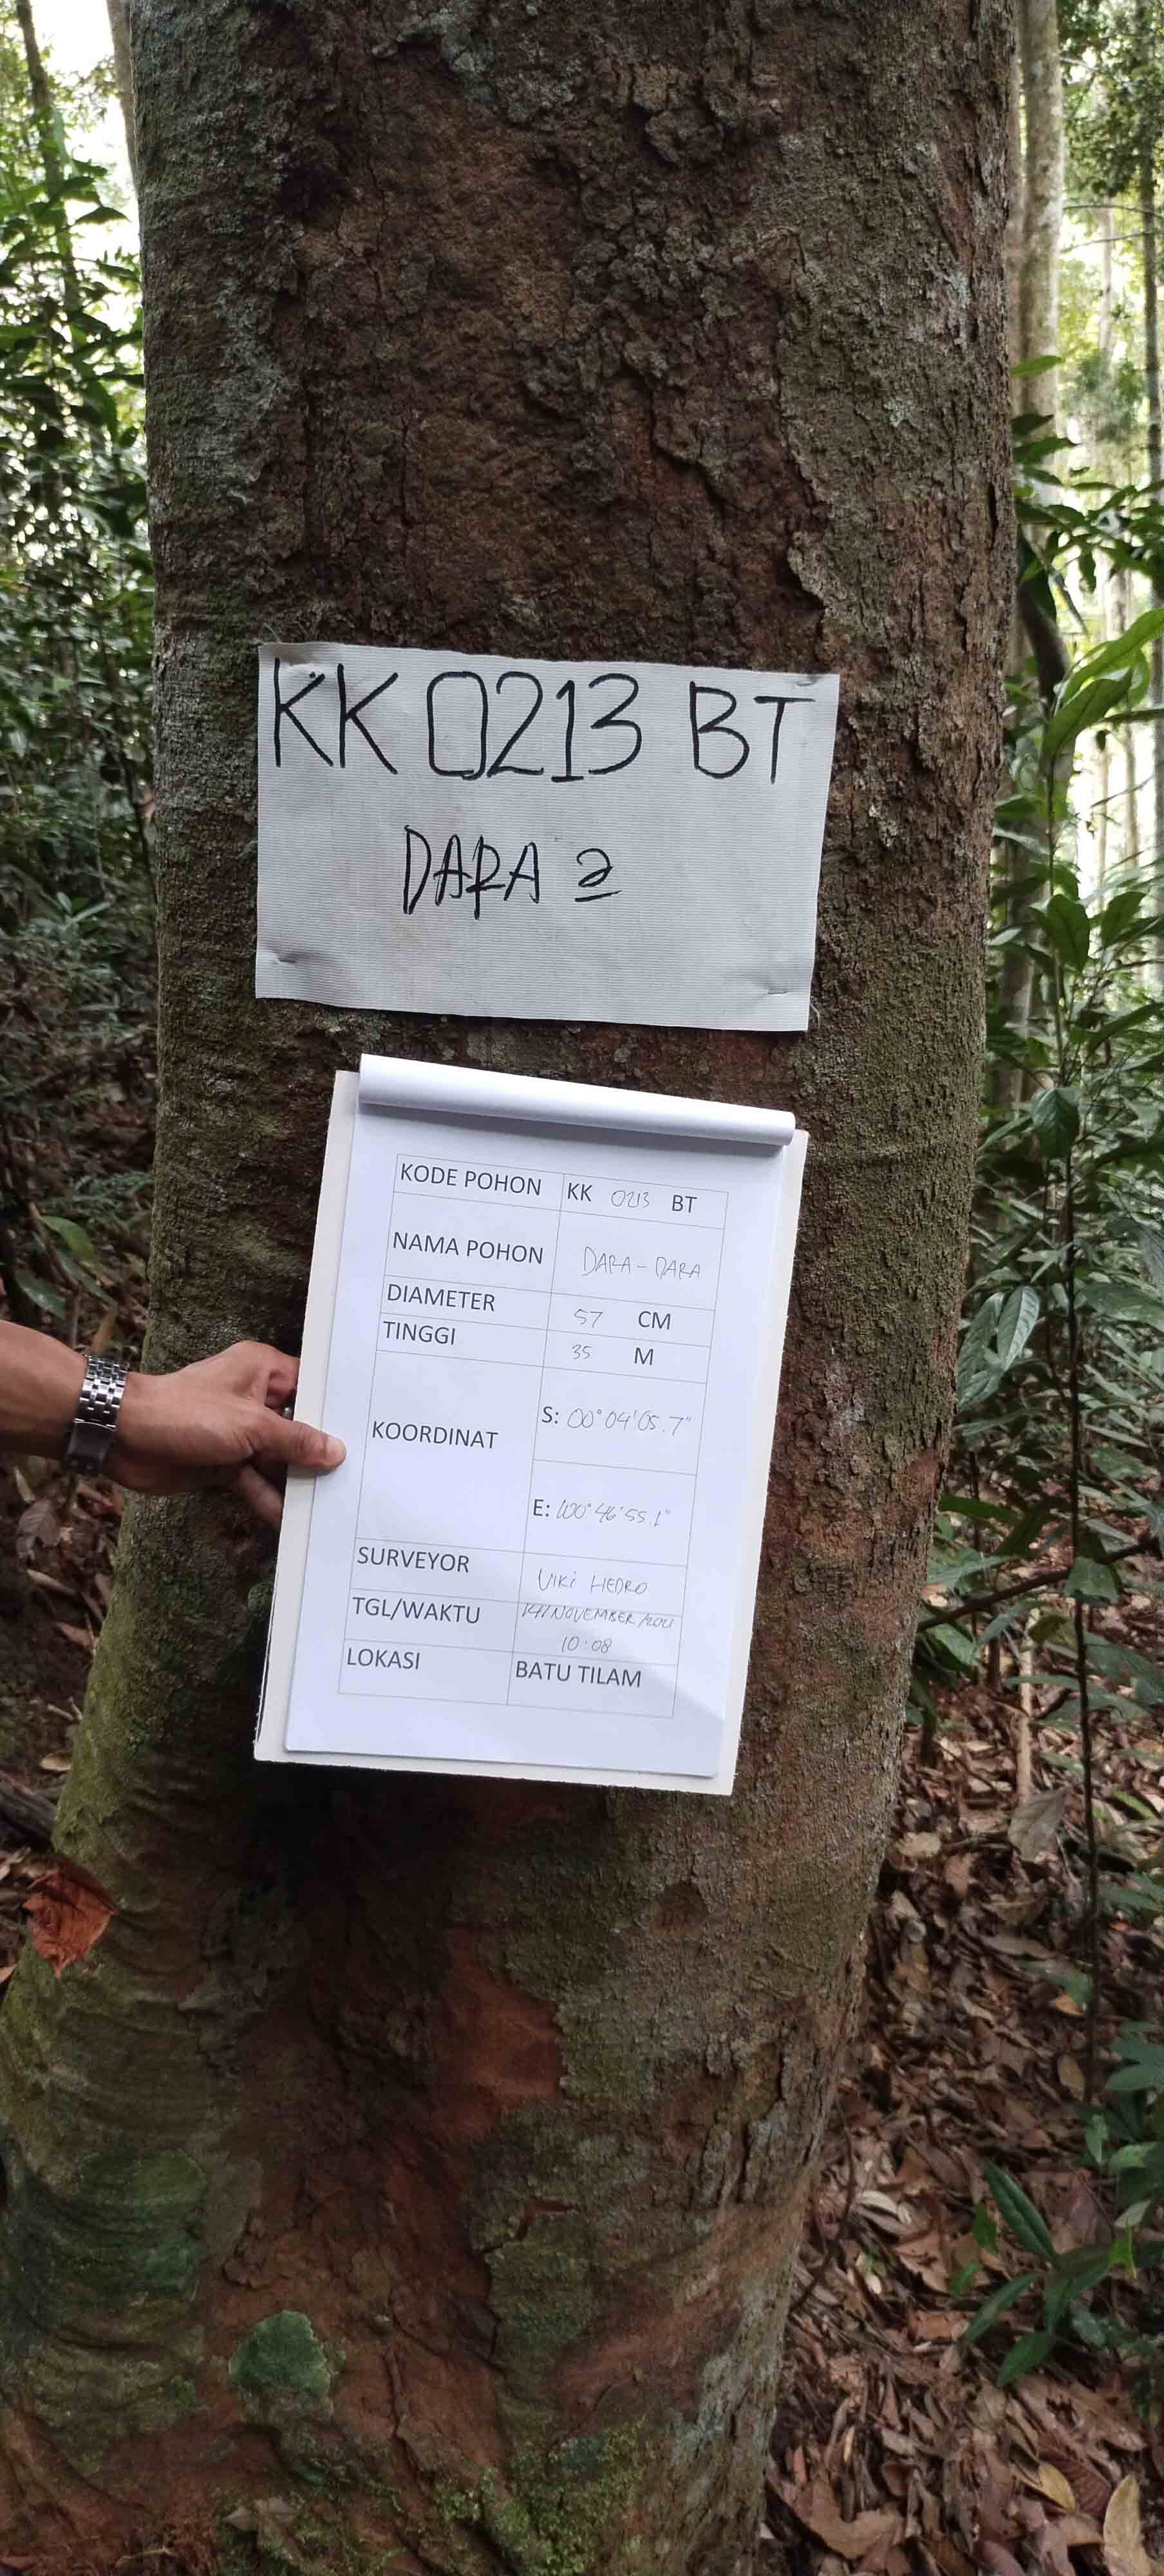 KK 0213 BT
DARA 2
KODE POHON KK 0213 BT
NAMA POHON DARA-DARA
DIAMETER 57 CM
TINGGI 35 M
KOORDINAT
S: 00°04'05.7"
E: 100°46'55.1"
SURVEYOR VIKI HEDRO
TGL/WAKTU 14/NOVEMBER/2021
10:08
LOKASI BATU TILAM